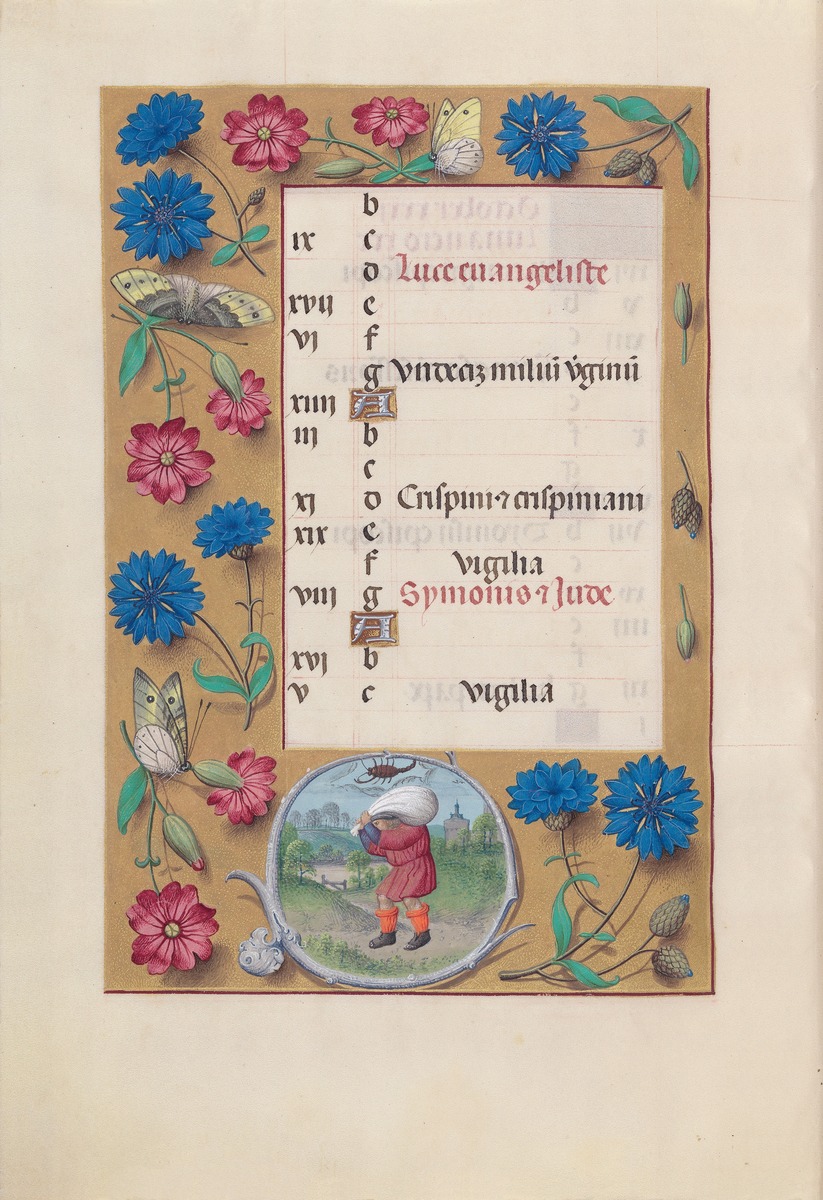 b
ix c
d Luce euangeliste
xvij e
vj f
g Vndeciz miliū v̇ginū
xiiij A
iij b
c
xj d Crispini ⁊ crispiniani
xix e
f vigilia
viij g Symonis ⁊ Jude
A
xvj b
v c vigilia